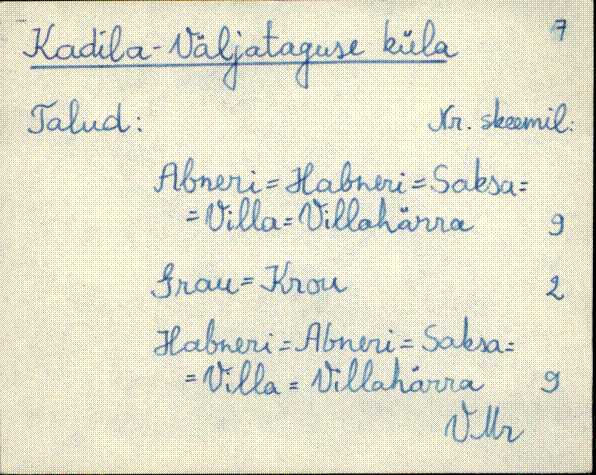 Kadila-Väljataguse küla 7
Talud: Nr. skeemil:
Abneri = Habneri = Saksa =
= Villa = Villahärra 9
Grau = Krou 2
Habneri = Abneri = Saksa =
= Villa = Villahärra 9
VMr